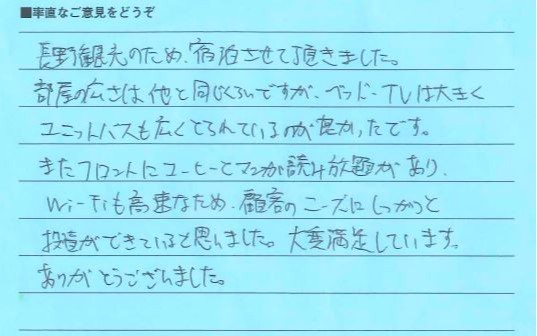 ■率直なご意見をどうぞ
長野観光のため、宿泊させて頂きました。
部屋の広さは他と同じくらいですが、ベッド・TVは大きく
ユニットバスも広くとられているのが良かったです。
またフロントにコーヒーとマンガ読み放題があり、
Wi-Fiも高速なため、顧客のニーズにしっかりと
投資ができていると思いました。大変満足しています。
ありがとうございました。